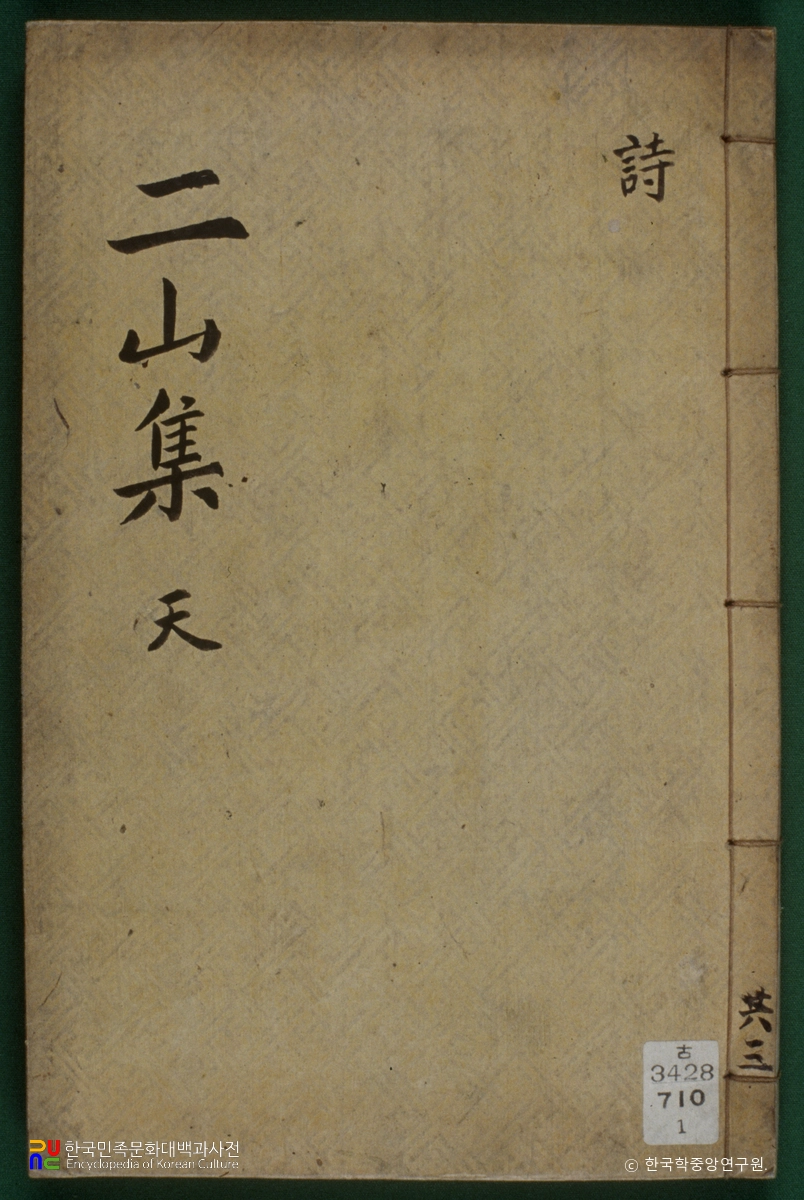 詩
二山集 天
共三
古
3428
710
1
한국민족문화대백과사전
Encyclopedia of Korean Culture
ⓒ 한국학중앙연구원